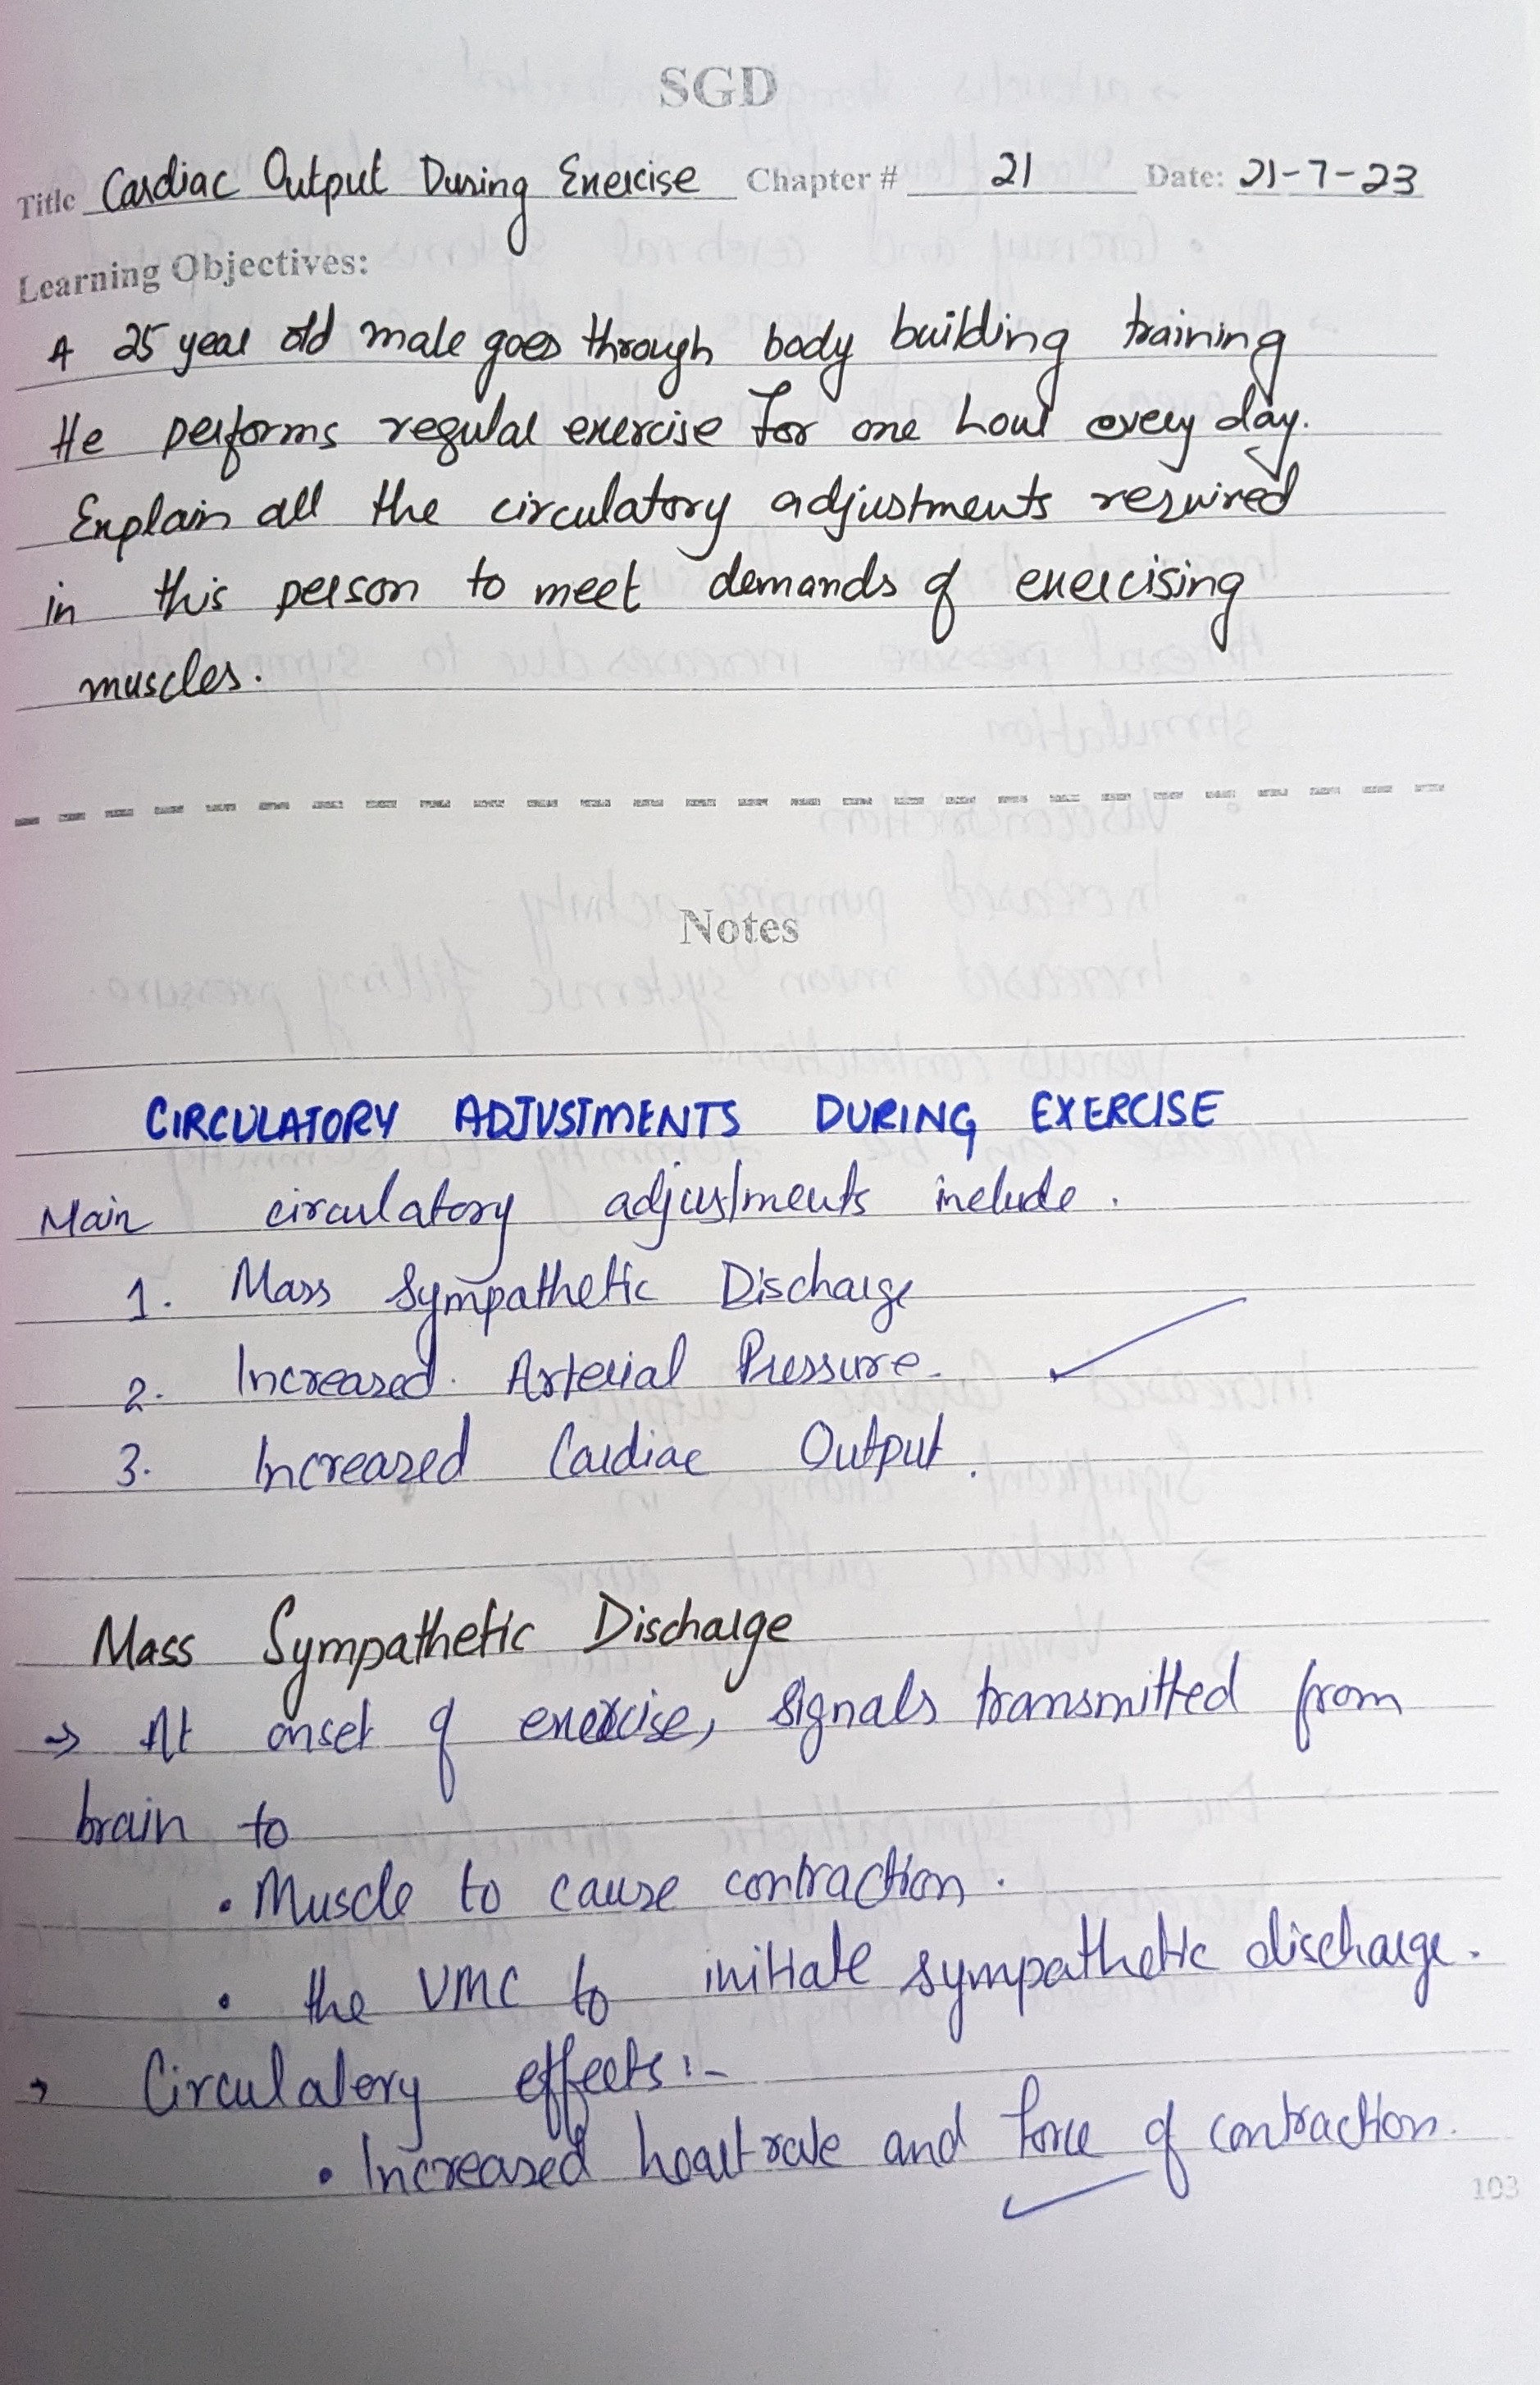 SGD
Title Cardiac Output During Exercise Chapter # 21 Date: 21-7-23
Learning Objectives:
A 25 year old male goes through body building training
He performs regular exercise for one hour every day.
Explain all the circulatory adjustments required
in this person to meet demands of exercising
muscles.
Notes
CIRCULATORY ADJUSTMENTS DURING EXERCISE
Main circulatory adjustments include.
1. Mass Sympathetic Discharge
2. Increased. Arterial Pressure.
3. Increased Cardiac Output.
Mass Sympathetic Discharge
→ At onset of exercise, signals transmitted from
brain to
• Muscle to cause contraction.
• the VMC to initiate sympathetic discharge.
→ Circulatory effects:-
• Increased heart rate and force of contraction.
103